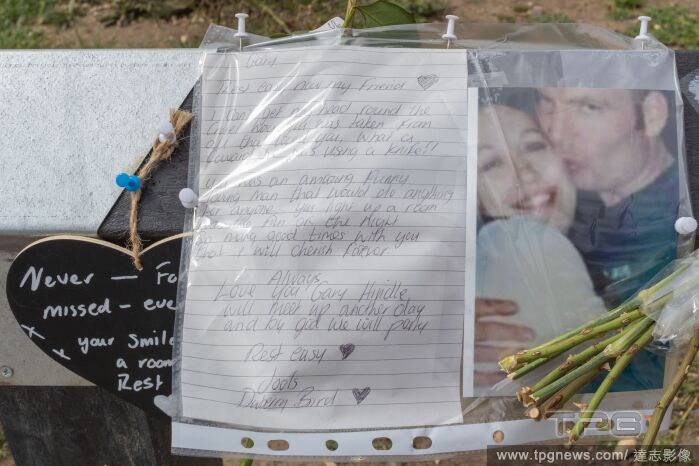 Gary
Rest easy now my Friend
I can't get my head round the
taken from
all that
was using a knife!!
was an amazing Funny
young man that would do anything
For anyone, you light up a room
on the Night
So many good times with you
that I will cherish forever
Always
Love You Gary Hindle
will meet up another day
and by god we will party
Rest easy
Jools
Bird
Never - Fo
missed - eve
your smile
a room
Rest
TPG
www.tpgnews.com/達志影像